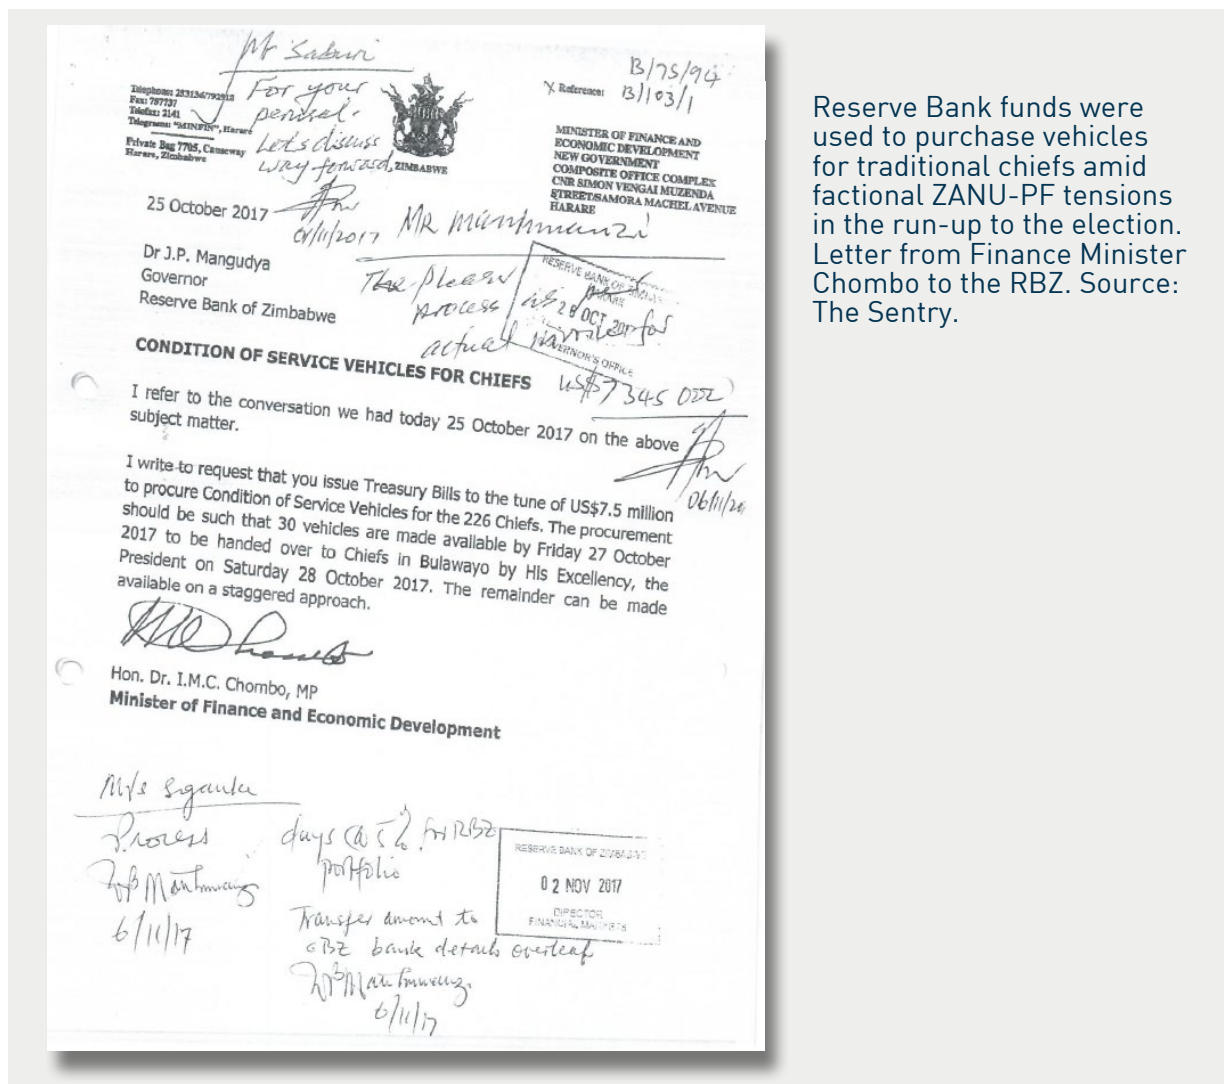 Mr Saburi
For your
perusal.
Let's discuss
way forward,
01/11/2017
Telephone: 283136/792918
Fax: 797737
Telefax: 2141
Telegrams: "MINFIN", Harare
Private Bag 7705, Causeway
Harare, Zimbabwe
ZIMBABWE
B/75/94
Reference: B/103/1
MINISTER OF FINANCE AND
ECONOMIC DEVELOPMENT
NEW GOVERNMENT
COMPOSITE OFFICE COMPLEX
CNR SIMON VENGAI MUZENDA
STREET/SAMORA MACHEL AVENUE
HARARE
25 October 2017
Dr J.P. Mangudya
Governor
Reserve Bank of Zimbabwe
MR
please
process
actual
US$7345 000
06/11/20
RESERVE BANK OF
HARARE
28 OCT 2017
GOVERNOR'S OFFICE
CONDITION OF SERVICE VEHICLES FOR CHIEFS
I refer to the conversation we had today 25 October 2017 on the above
subject matter.
I write to request that you issue Treasury Bills to the tune of US$7.5 million
to procure Condition of Service Vehicles for the 226 Chiefs. The procurement
should be such that 30 vehicles are made available by Friday 27 October
2017 to be handed over to Chiefs in Bulawayo by His Excellency, the
President on Saturday 28 October 2017. The remainder can be made
available on a staggered approach.
Hon. Dr. I.M.C. Chombo, MP
Minister of Finance and Economic Development
Process
6/11/17
days @ 5% for RBZ
portfolio
Transfer amount to
bank details overleaf
6/11/17
RESERVE BANK OF ZIMBABWE
02 NOV 2017
DIRECTOR
FINANCIAL MARKETS
Reserve Bank funds were
used to purchase vehicles
for traditional chiefs amid
factional ZANU-PF tensions
in the run-up to the election.
Letter from Finance Minister
Chombo to the RBZ. Source:
The Sentry.